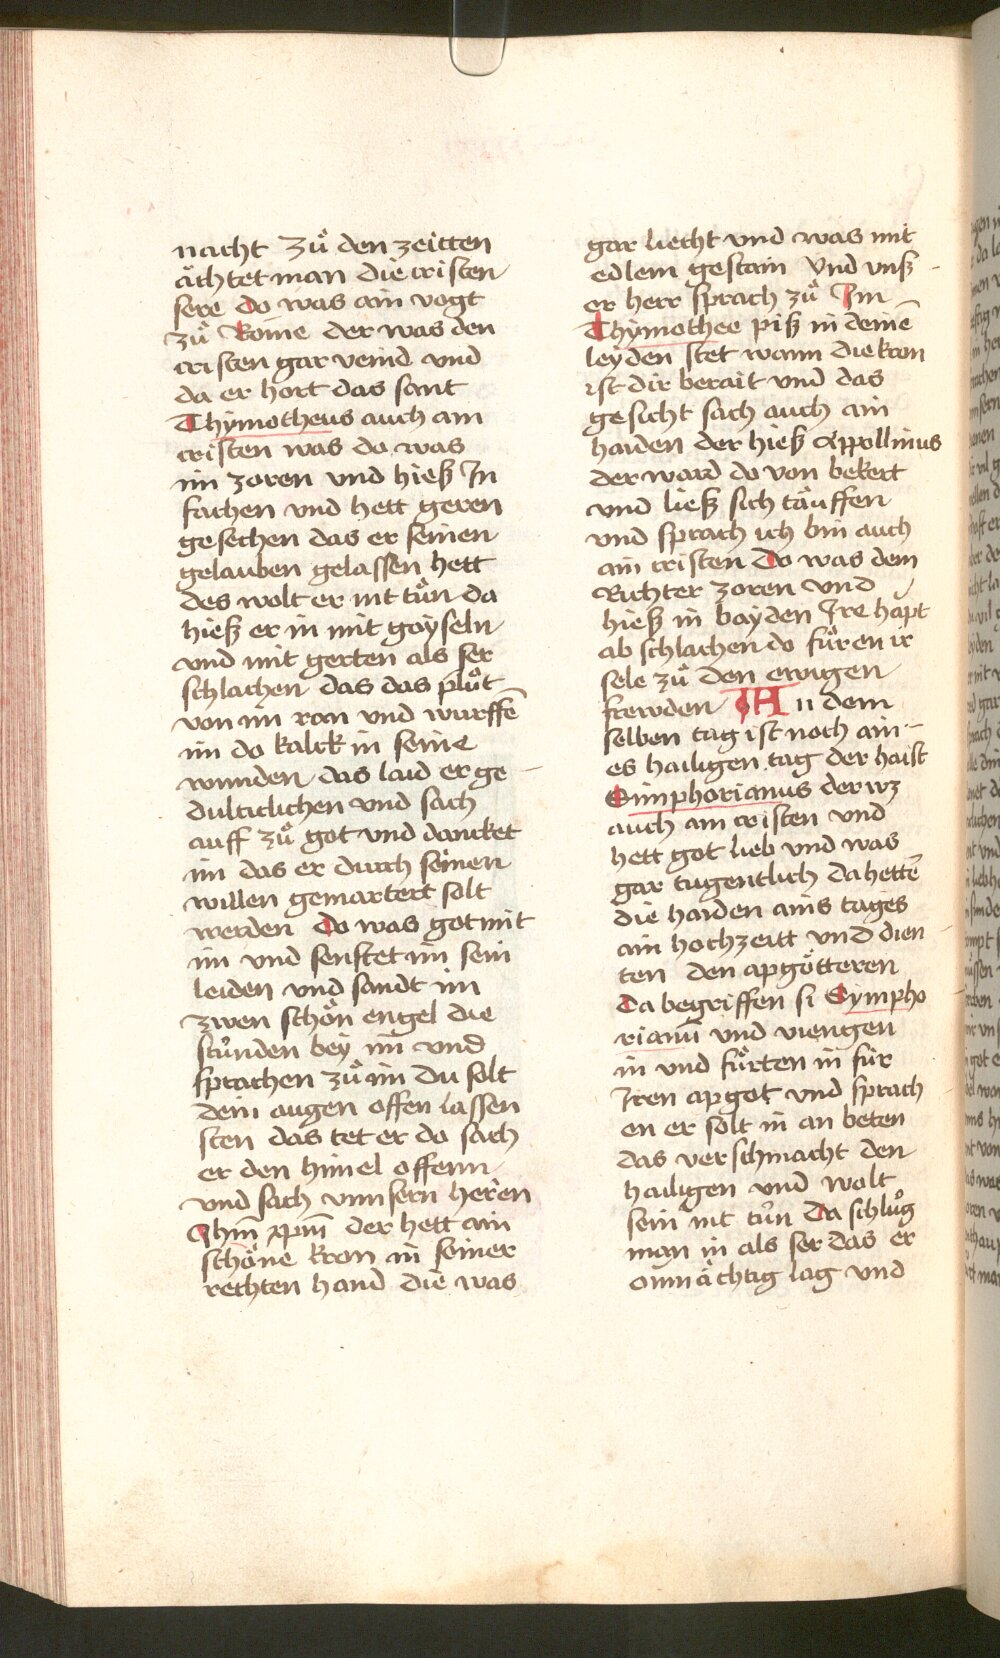 nacht zů den zeitten
ächtet man die cristen
sere do was ain vogt
zů Rome der was den
cristen gar veind vnd
da er hort das sant
Thymotheus auch ain
cristen was do was
im zoren vnd hieß In
fachen vnd hett geren
gesechen das er seinen
gelauben gelassen hett
des wolt er nit tůn da
hieß er in mit gayseln
vnd mit gerten als ser
schlachen das das plůt
von im ran vnd wurffē
im do kalck in seine
wunden das laid er ge
dulticlichen vnd sach
auff zů got vnd dancket
im das er durch seinen
willen gemartert solt
werden Do was got mit
im vnd senftet im sein
leiden vnd sandt im
zwen schön engel die
stůnden bey im vnd
sprachen zů im Du solt
dein augen offen lassen
sten das tet er do sach
er den himel offenn
vnd sach vnnsern heren
Jhm̄ xp̄m der hett ain
schöne kron in seiner
rechten hand die was
gar liecht vnd was mit
edlem gestain Vnd vnß
er herr sprach zů Im
Thymothee piß in deinē
leyden stet wann die kron
ist dir berait vnd das
gesicht sach auch ain
haiden der hieß Appollinus
der ward do von bekert
vnd ließ sich täuffen
vnd sprach ich bin auch
ain cristen Do was dem
Richter zoren vnd
hieß in bayden Jre hapt
ab schlachen do fůren ir
sele zů den ewigen
frewden An dem
selben tag ist noch ain
es hailigen tag der haist
Simphorianus der wz
auch ain cristen vnd
hett got lieb vnd was
gar tugentlich da hettē
die haiden ains tages
ain hochzeitt vnd dien
ten den apgötteren
Da begriffen si Sympho
rianū vnd viengen
in vnd fůrten in für
Jren apgot vnd sprach
en er solt in an beten
das verschmacht den
hailigen vnd wolt
sein nit tůn Da schlůg
man in als ser das er
onmächtig lag vnd